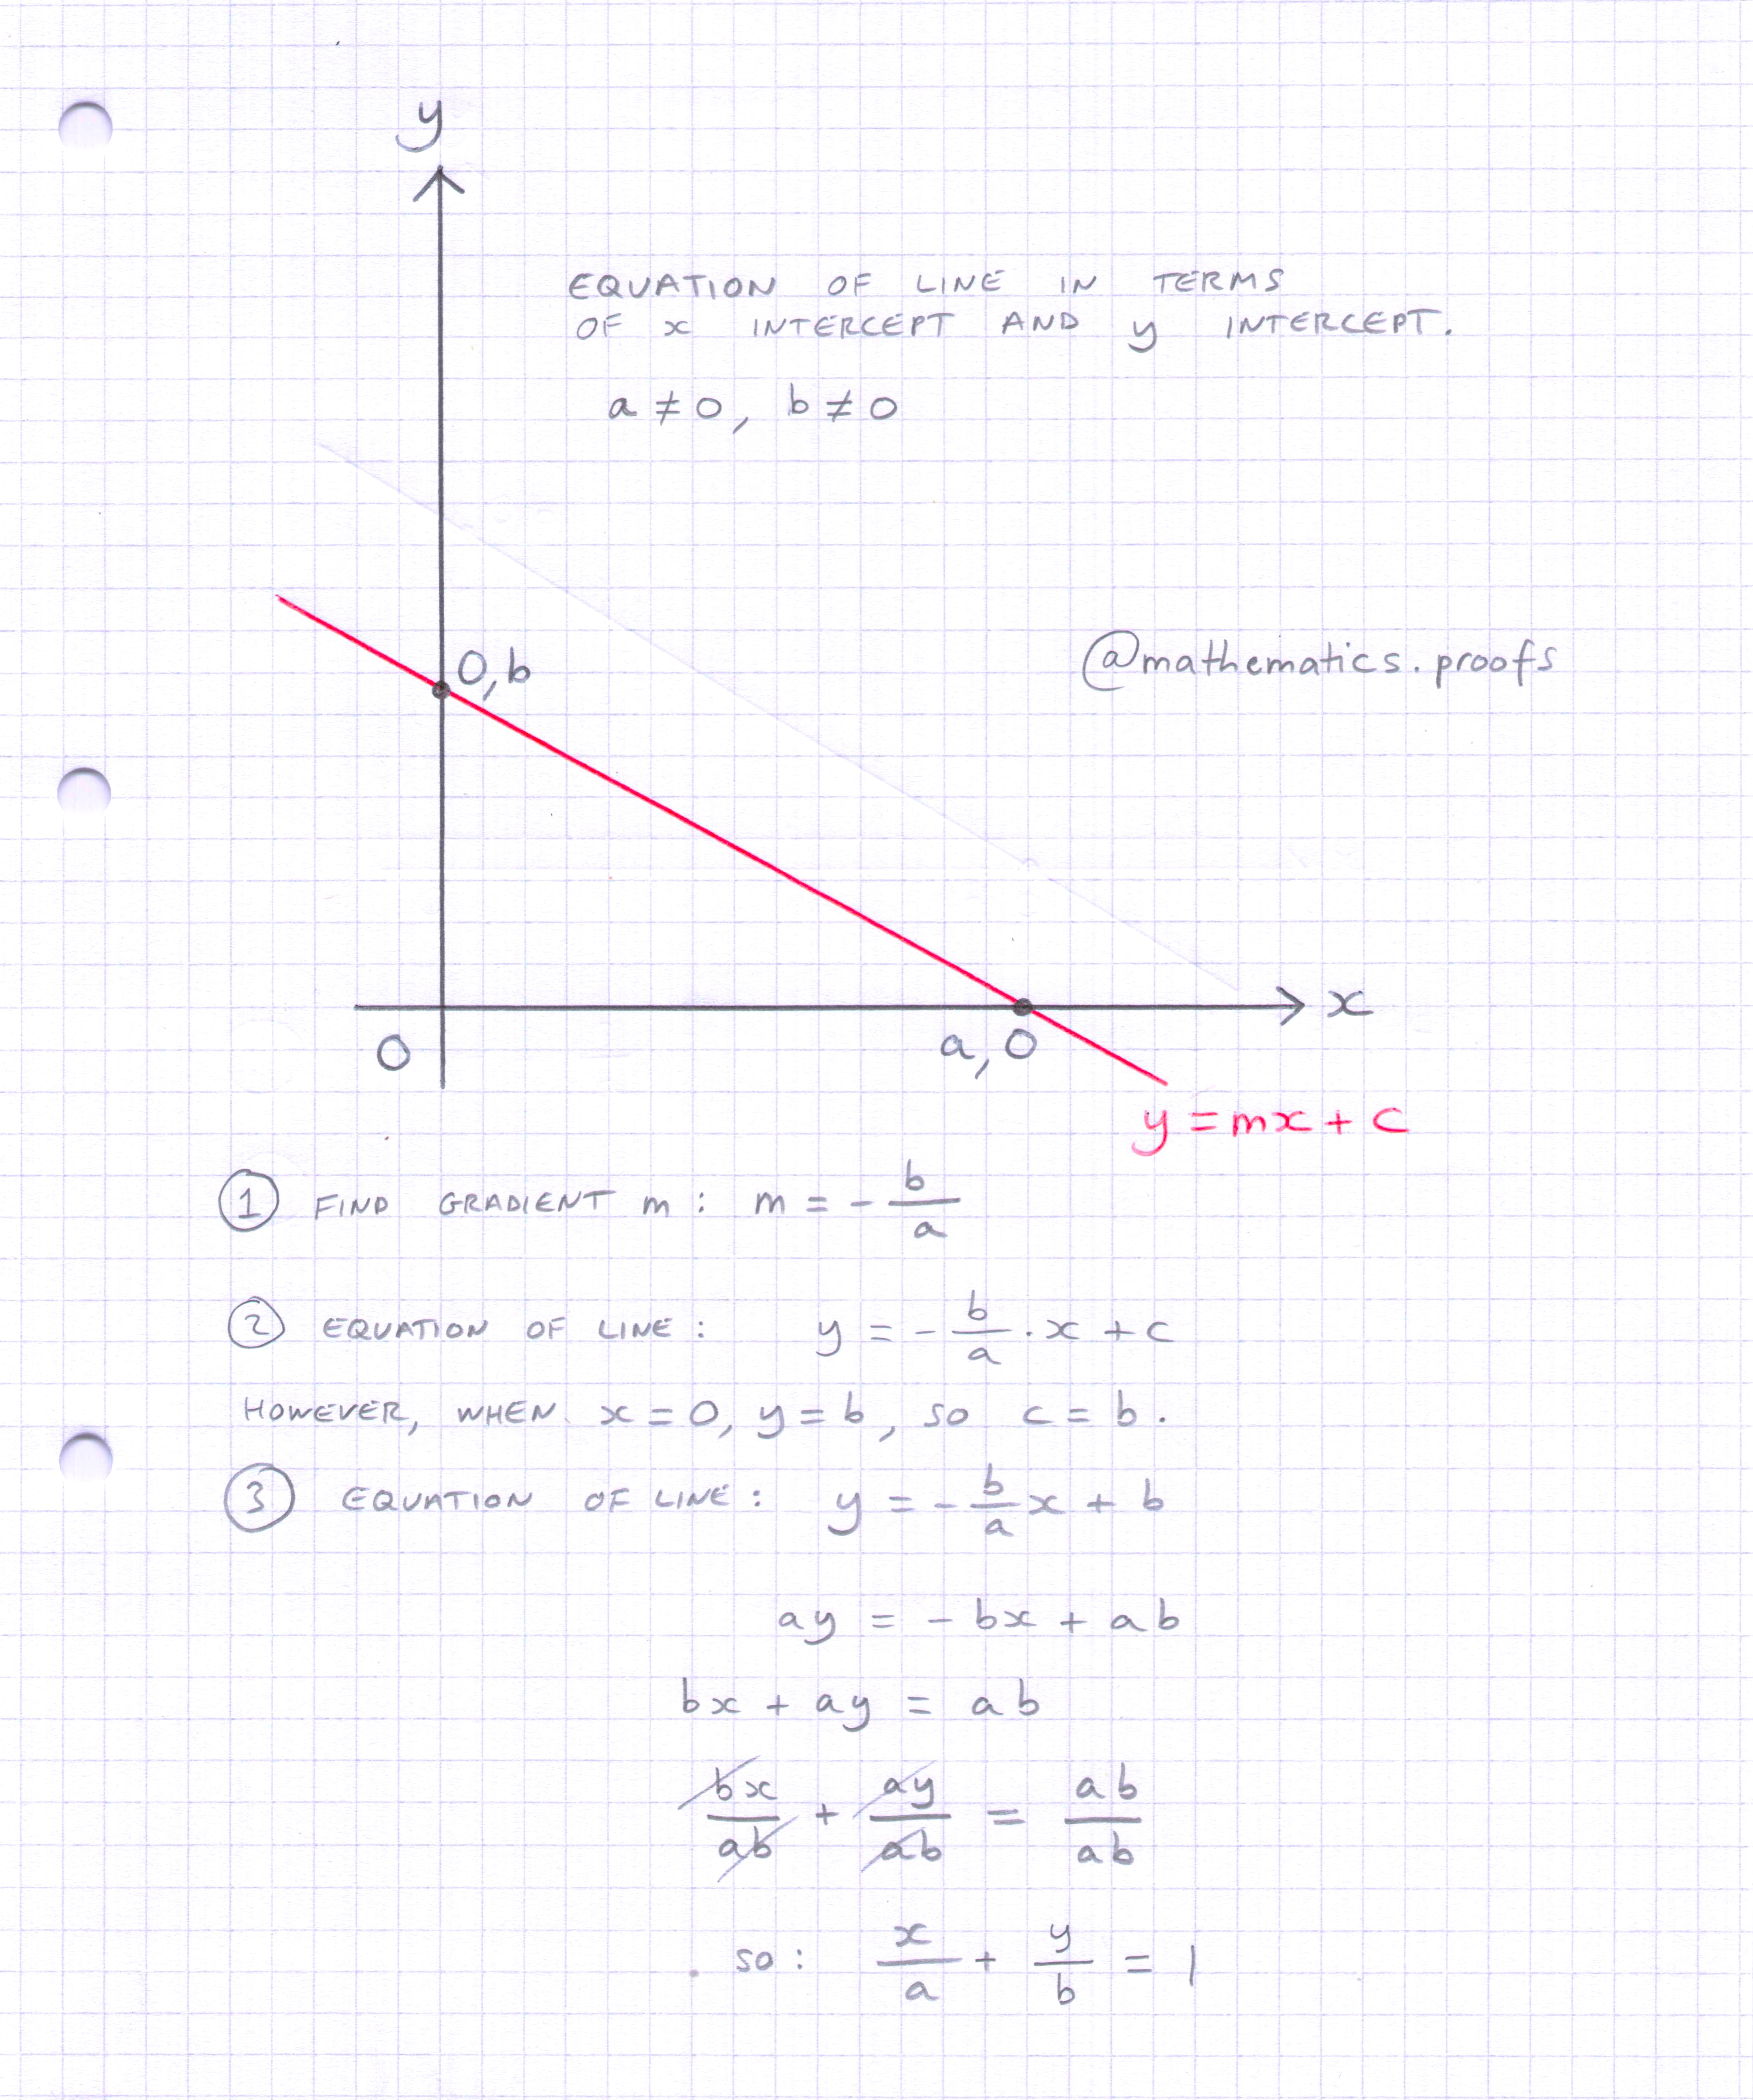 y
EQUATION OF LINE IN TERMS
OF x INTERCEPT AND y INTERCEPT.
a ≠ 0, b ≠ 0
0, b
@mathematics.proofs
x
0
a, 0
y = mx + c
① FIND GRADIENT m : m = - b/a
② EQUATION OF LINE : y = - b/a · x + c
HOWEVER, WHEN x = 0, y = b, SO c = b.
③ EQUATION OF LINE : y = - b/a x + b
ay = - bx + ab
bx + ay = ab
bx/ab + ay/ab = ab/ab
so : x/a + y/b = 1